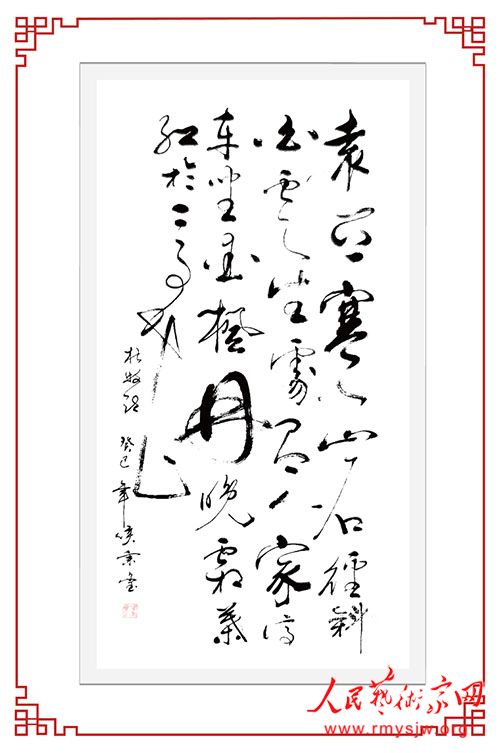 遠上寒山石徑斜
白雲生處有人家停
車坐愛楓林晚霜葉
紅於二月花
杜牧詩 癸巳年
人民藝術家网
www.rmysjw.org